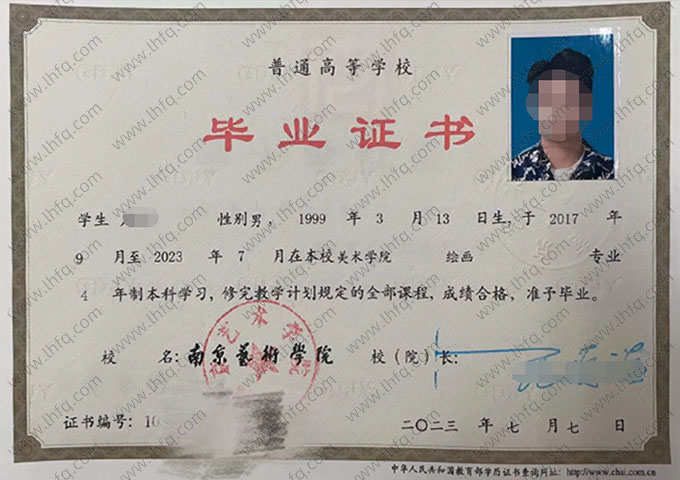 普通高等学校
毕业证书
学生 性别男，1999 年 3 月 13 日生，于 2017 年
9 月至 2023 年 7 月在本校美术学院 绘画 专业
4 年制本科学习，修完教学计划规定的全部课程，成绩合格，准予毕业。
校 名：南京藝術學院 校（院）长：
证书编号：10
二〇二三 年 七 月 七 日
中华人民共和国教育部学历证书查询网址：http://www.chsi.com.cn
www.lhfq.com